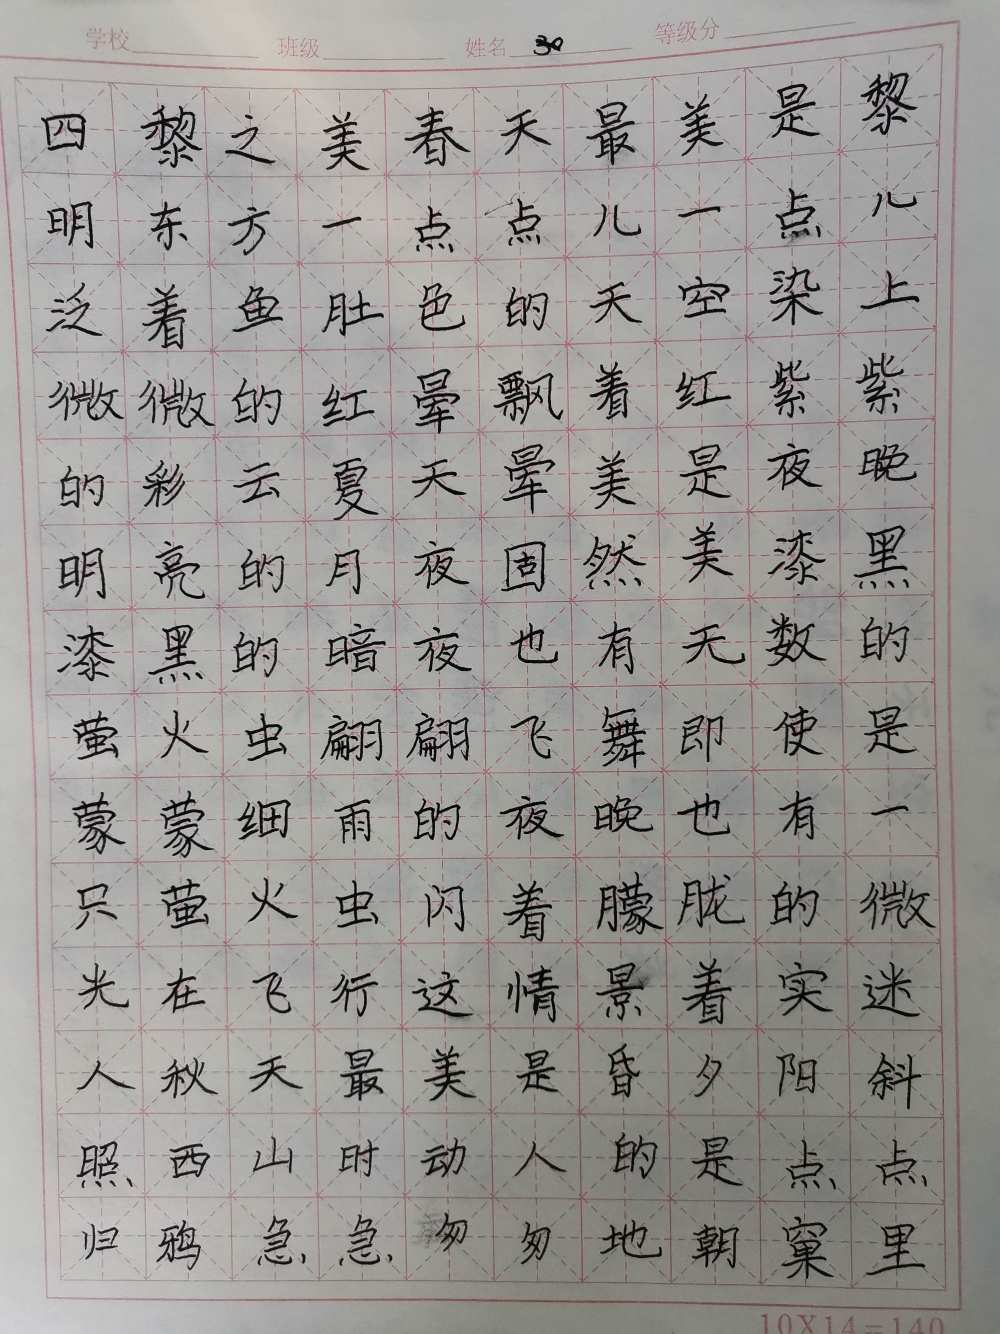 学校 班级 姓名 30 等级分
四黎之美春天最美是黎
明东方一点点儿一点儿
泛着鱼肚色的天空染上
微微的红晕飘着红紫紫
的彩云夏天晕美是夜晚
明亮的月夜固然美漆黑
漆黑的暗夜也有无数的
萤火虫翩翩飞舞即使是
蒙蒙细雨的夜晚也有一
只萤火虫闪着朦胧的微
光在飞行这情景着实迷
人秋天最美是昏夕阳斜
照西山时动人的是点点
归鸦急急匆匆地朝窠里
10X14=140